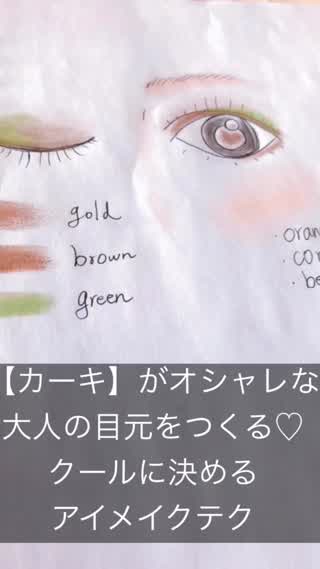 gold
brown
green
【カーキ】がオシャレな
大人の目元をつくる♡
クールに決める
アイメイクテク